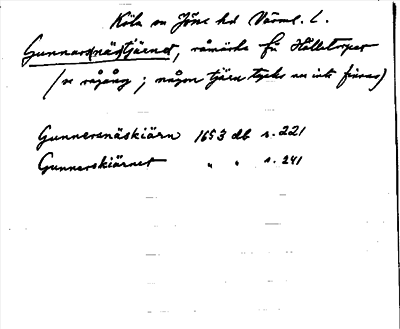 Köla sn Jösse hd Värml. l.
Gunnars(näs)tjärnet, råmärke fr Hälletorpet
(se rågång; någon tjärn tycks nu inte finnas)
Gunnersnäskiärn 1653 db s. 221
Gunnarskiärnet " " s. 241